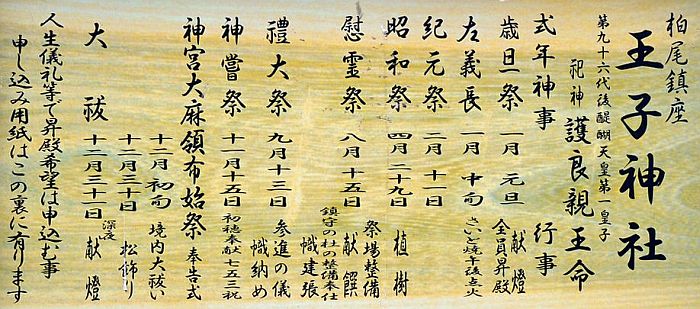 柏尾鎮座
王子神社
第九十六代後醍醐天皇第一皇子
祀神 護良親王命
式年神事 行事
歳旦祭 一月 元旦 献燈
全員昇殿
左義長 一月 中旬 さいと焼午後点火
紀元祭 二月 十一日
昭和祭 四月 二十九日 植樹
慰霊祭 八月 十五日 祭場整備
献饌
鎮守の杜の整備奉仕
幟建張
禮大祭 九月 十三日 参進の儀
幟納め
神嘗祭 十一月 十五日 初穂奉献 七五三祝
神宮大麻領布始祭 奉告式
十二月 初旬 境内大祓い
大祓 十二月 三十日 松飾り
十二月 三十一日 深夜 献燈
人生儀礼等で昇殿希望は申込む事
申し込み用紙はこの裏に有ります